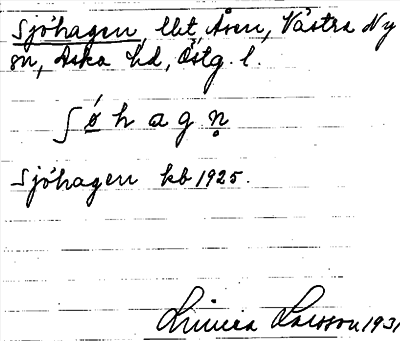 Sjöhagen, lht, Åsen, Västra Ny
sn, Aska hd, Östg. l.
ʃǿhagn̥
Sjöhagen kb 1925.
Linnea Larsson 1931